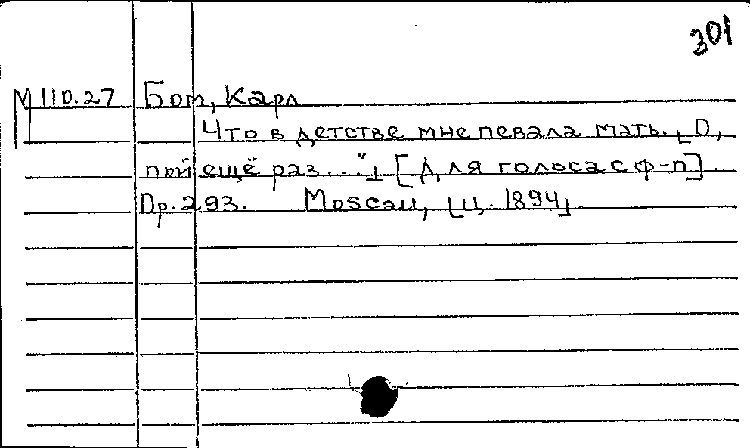 301
М 110.27 Бом, Карл
Что в детстве мне певала мать. [„О,
пой ещё раз..."] [Для голоса с ф-п].
Op. 293. Moscau, [ц. 1894].